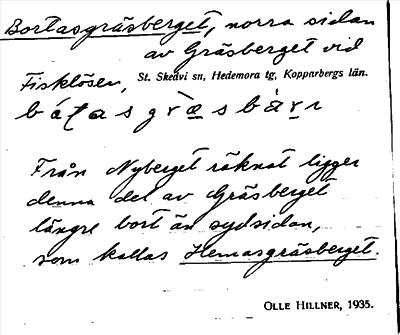 Bortasgräsberget, norra sidan
av Gräsberget vid
Fisklösen, St. Skedvi sn, Hedemora tg, Kopparbergs län.
Från Nyberget räknat ligger
denna del av Gräsberget
längre bort än sydsidan,
som kallas Hemasgräsberget.
OLLE HILLNER, 1935.